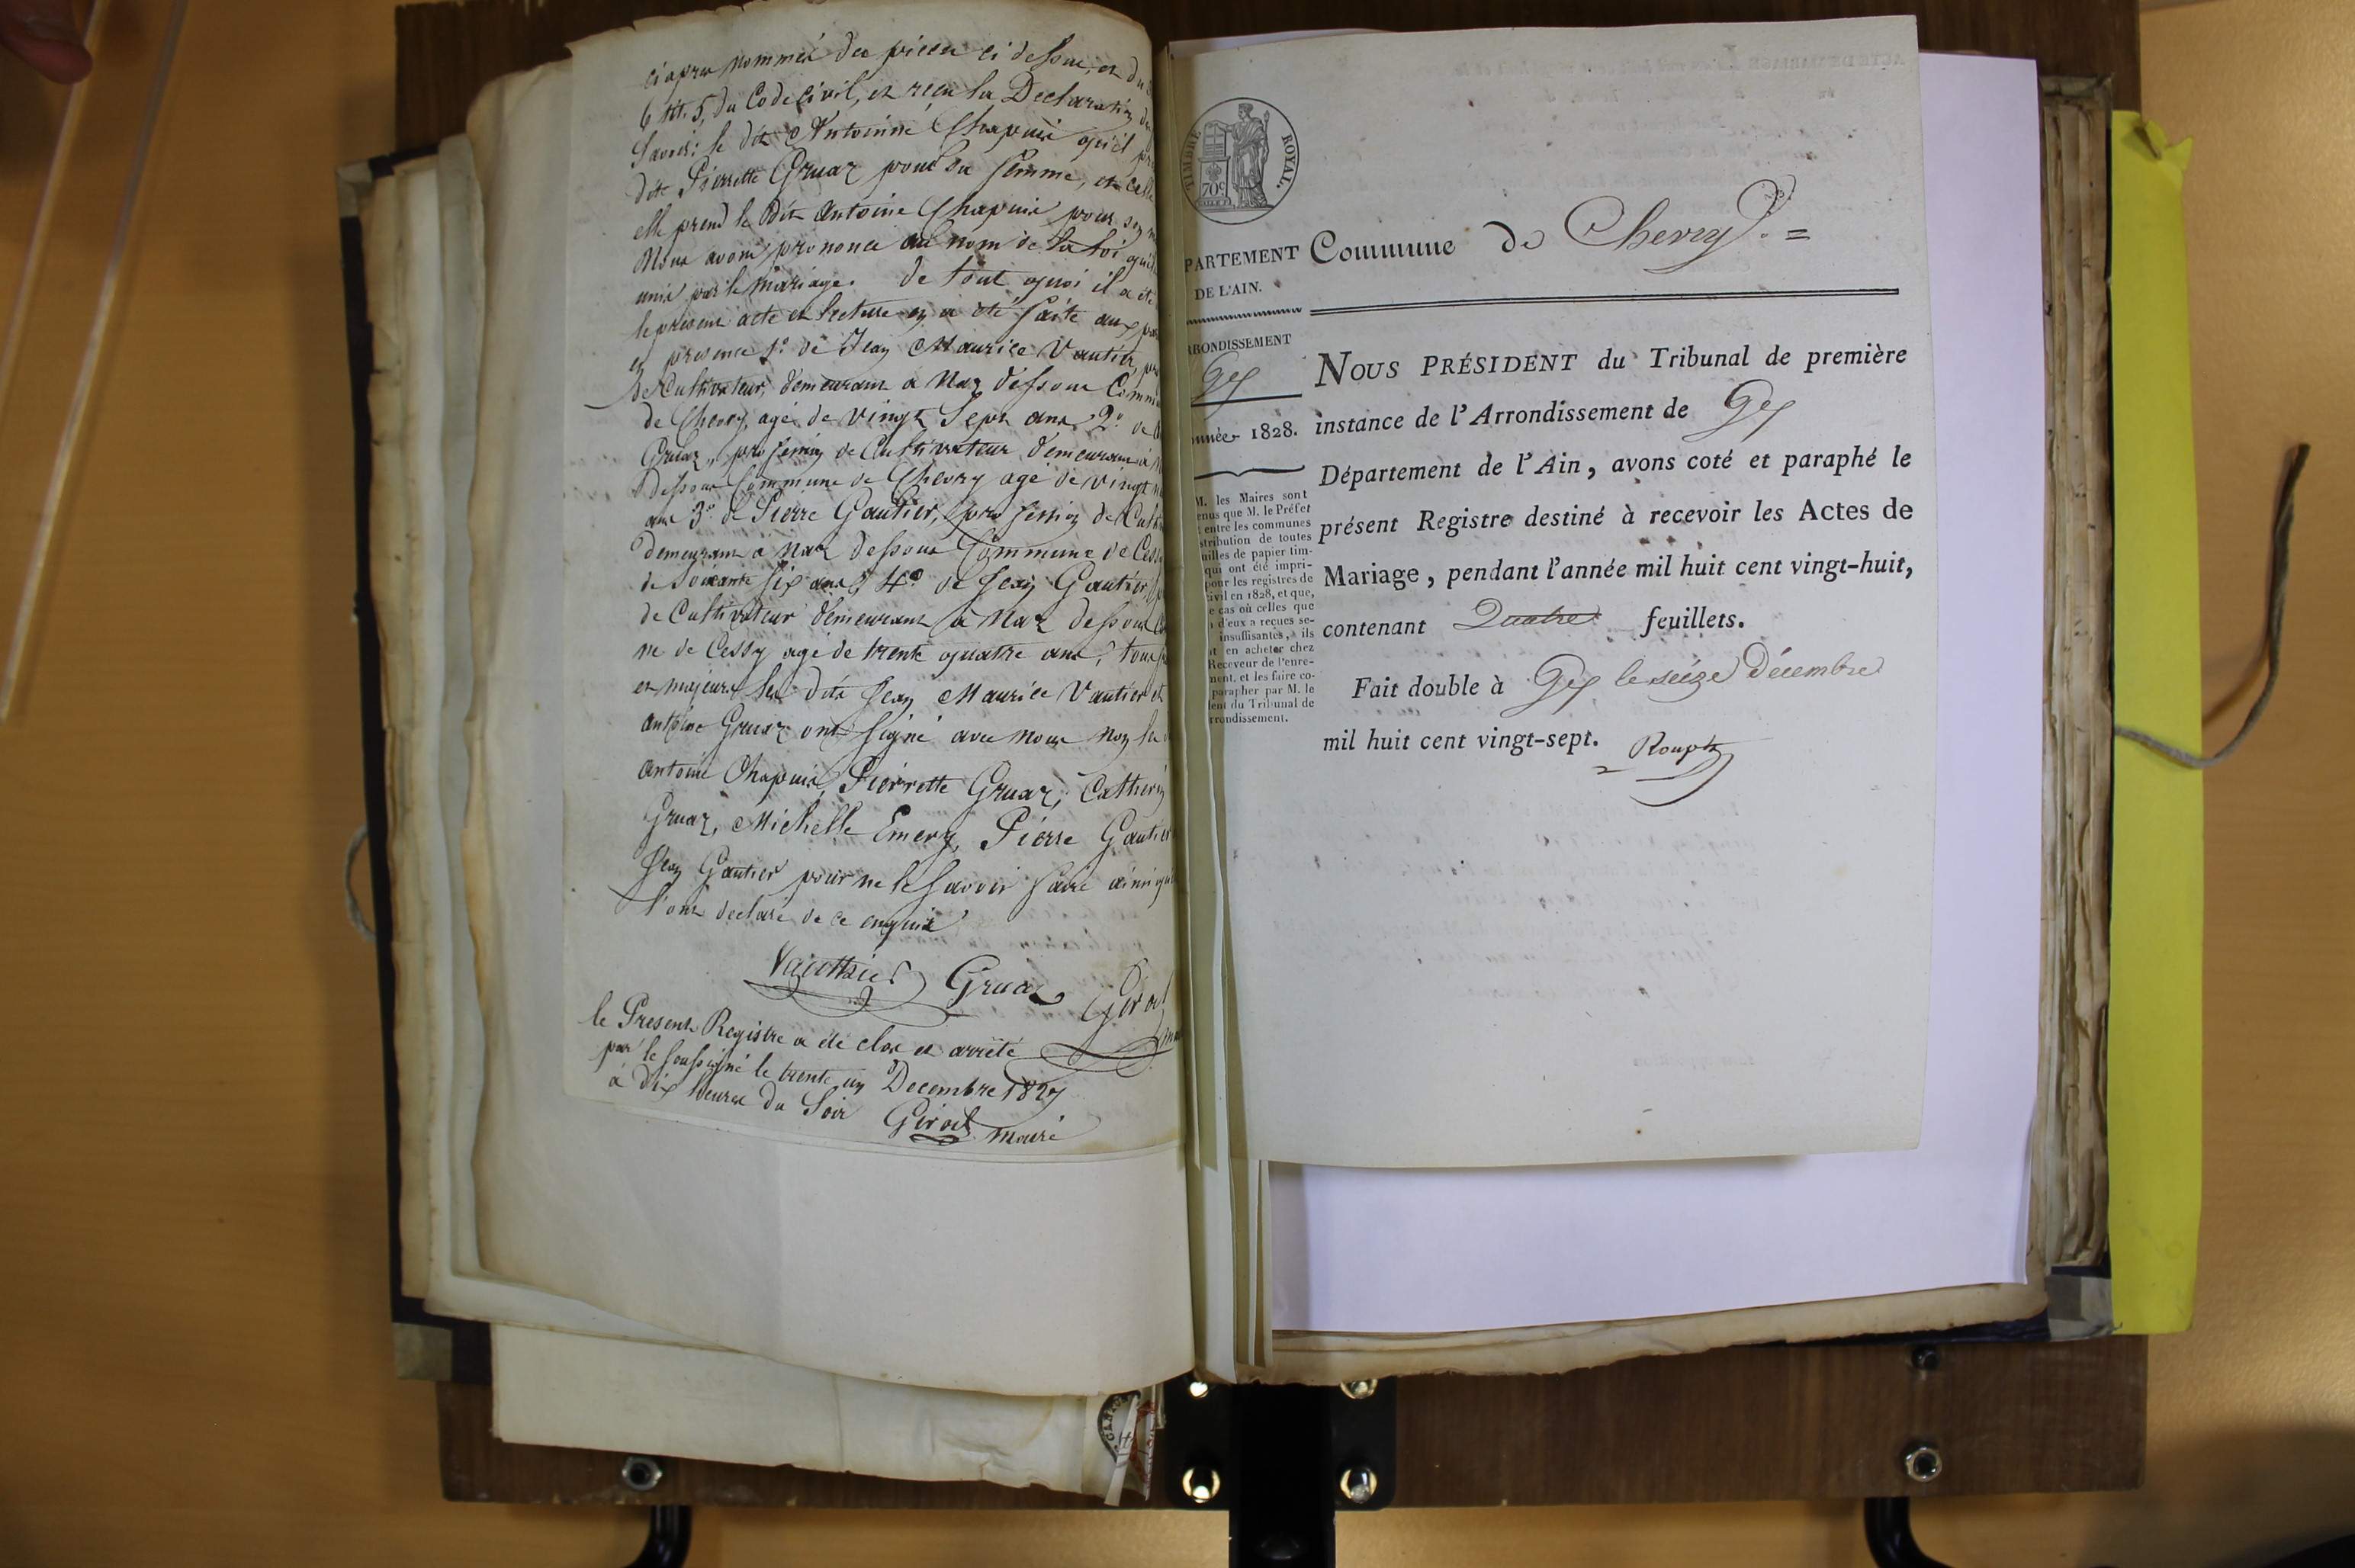 ci apres nommés des pieces ci dessus, et du
6 tit. 5, du Code civil, et reçu la Declaration de
Savoir: le dit Antoinne Chapuis qu'il pr
dite Pierrette Gruaz pour sa femme, et celle
elle prend le dit Antoine Chapuis pour son m
Nous avons prononcé au nom de la Loi qu'ils
unis par le mariage. de tout quoi il a été
le present acte et lecture en a été faite aux par
en presence 1.º de Jean Maurice Vautier, pro
de Cultivateur, demeurant a Naz dessous Commu
de Chevry, agé de vingt Sept ans 2.º de
Gruaz, profession de Cultivateur demeurant à
dessous Commune de Chevry agé de vingt
ans 3.º de Pierre Gautier, profession de Cult
demeurant a Naz dessous Commune de Cess
de Soixante six ans, 4.º de Jean Gautier,
de Cultivateur demeurant a Naz dessous Co
ne de Cessy agé de trente quatre ans, tous
et majeurs les dits Jean Maurice Vautier et
antoine Gruaz ont signé avec nous non les
antoine Chapuis, Pierrette Gruaz, Catherin
Gruaz, Michelle Emery, Pierre Gautier
Jean Gautier pour ne le savoir faire ainsi qu
l'ont declaré de ce enquis
Vautthier Gruaz Girod
le Present Registre a été clos et arrêté
par le soussigné le trente un Decembre 1827
à dix heures du Soir Girod maire
TIMBRE ROYAL.
70c
PARTEMENT
DE L'AIN.
Commune de Chevry. =
RRONDISSEMENT
Gex
nnée 1828.
M. les Maires sont
enus que M. le Préfet
entre les communes
stribution de toutes
uilles de papier tim-
qui ont été impri-
pour les registres de
ivil en 1828, et que,
e cas où celles que
d'eux a reçues se-
insuffisantes, ils
t en acheter chez
Receveur de l'enre-
ment, et les faire co-
parapher par M. le
lent du Tribunal de
rrondissement.
NOUS PRÉSIDENT du Tribunal de première
instance de l'Arrondissement de Gex
Département de l'Ain, avons coté et paraphé le
présent Registre destiné à recevoir les Actes de
Mariage, pendant l'année mil huit cent vingt-huit,
contenant Quatre feuillets.
Fait double à Gex le seize Décembre
mil huit cent vingt-sept. Rouph